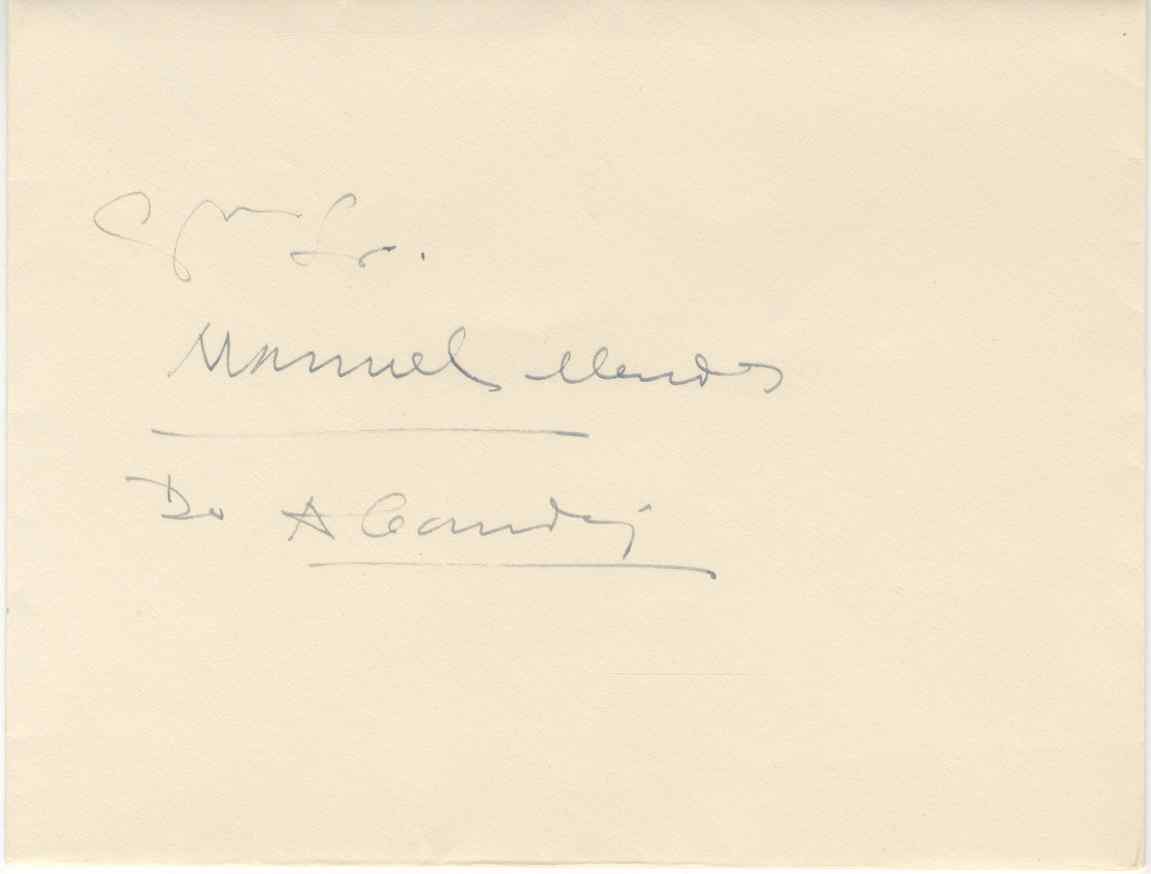 Exmo Sr.
Manuel Mendes
Do A Candi